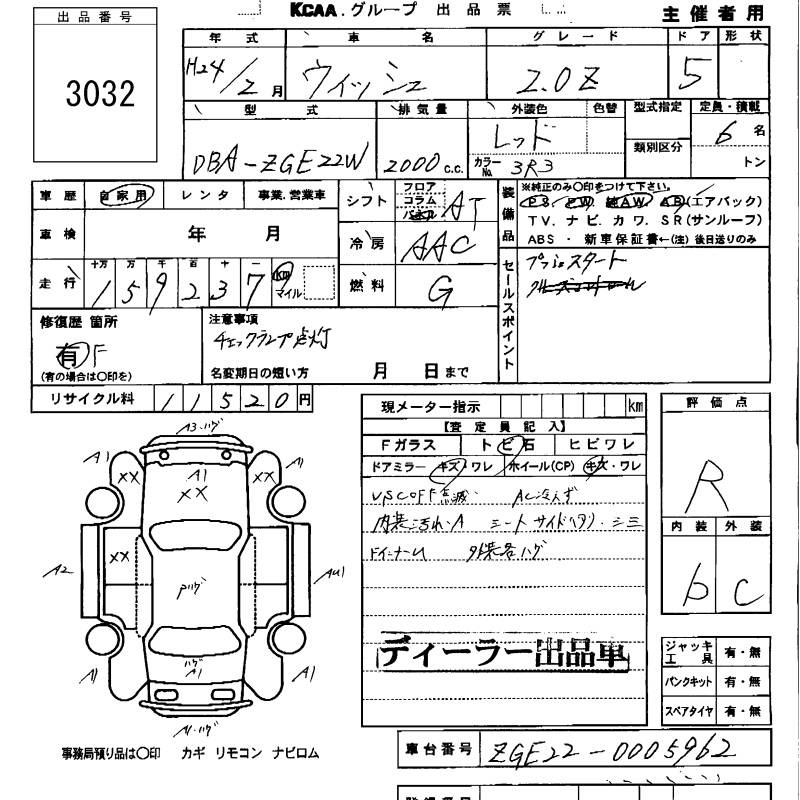 KCAA.グループ 出品票
主催者用
出品番号
3032
年式 車名 グレード ドア 形状
H24/2月 ウィッシュ 2.0Z 5
型式 排気量 外装色 色替 型式指定 定員・積載
DBA-ZGE22W 2000c.c. レッド 類別区分 6名
カラーNo. 3R3 トン
車歴 自家用 レンタ 事業.営業車
シフト フロア コラム パネル AT
装備品 ※純正のみ〇印をつけて下さい。
PS PW 純AW AB(エアバック)
TV. ナビ. カワ. SR(サンルーフ)
ABS ・ 新車保証書←(注)後日送りのみ
車検 年 月
冷房 AAC
走行 十万 万 千 百 十 一
159237 km マイル
燃料 G
セールスポイント
プッシュスタート
クルーズコントロール
修復歴 箇所
有 F
(有の場合は〇印を)
注意事項
チェックランプ点灯
名変期日の短い方 月 日まで
リサイクル料 11520円
現メーター指示 km
【査定員記入】
Fガラス トビ石 ヒビワレ
ドアミラー キズ・ワレ ホイール(CP) キズ・ワレ
VSC OFF点滅. AC冷えず
内装汚れ.A シートサイドヘタリ.シミ
外装各ハゲ
ディーラー出品車
評価点
R
内装 外装
b C
ジャッキ工具 有・無
パンクキット 有・無
スペアタイヤ 有・無
A3.ハゲ
A1 XX A1 XX XX A1
A2 XX Pハゲ AU1
ハゲ A1
A1 A1
A1.ハゲ
事務局預り品は〇印 カギ リモコン ナビロム
車台番号 ZGE22-0005962